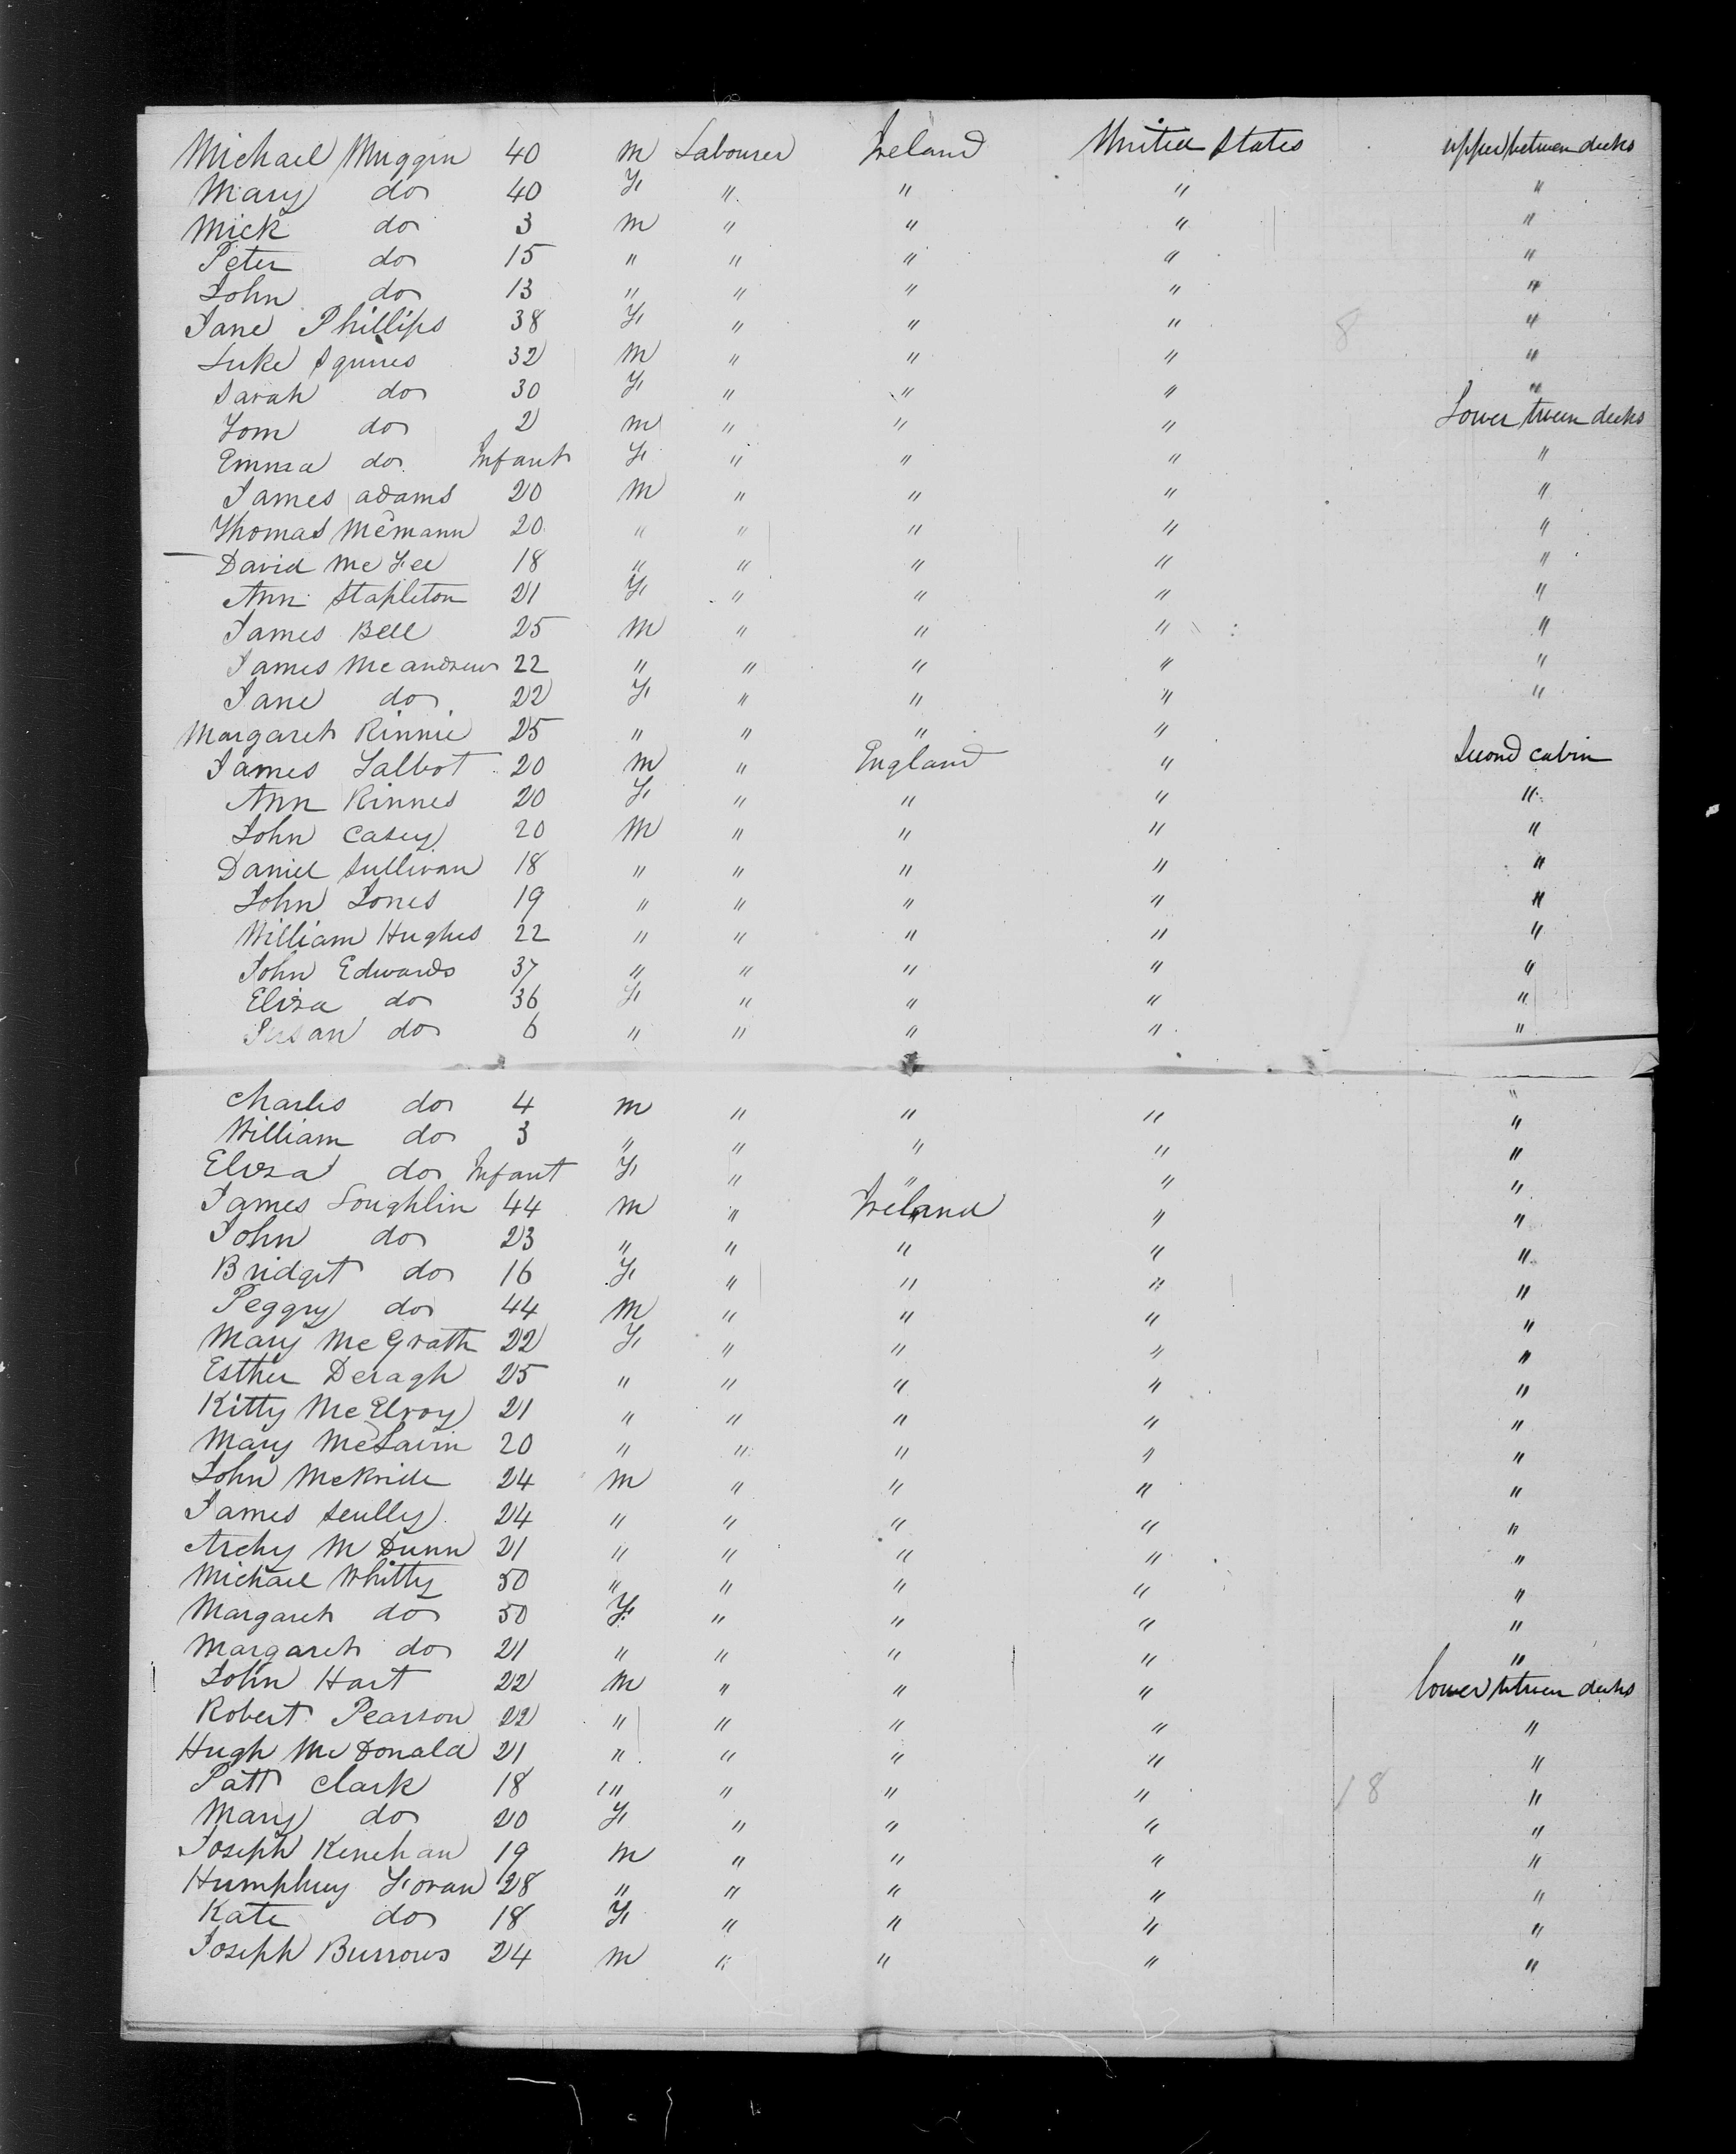 Michael Muggin 40 m Labourer Ireland United States upper between decks
Mary do 40 F " " " "
Mick do 3 m " " " "
Peter do 15 " " " " "
John do 13 " " " " "
Jane Phillips 38 F " " " "
Luke Squires 32 m " " " "
Sarah do 30 F " " " "
Tom do 2 m " " " Lower tween decks
Emma do Infant F " " " "
James adams 20 m " " " "
Thomas McMann 20 " " " " "
David McFee 18 " " " " "
Ann Stapleton 21 F " " " "
James Bell 25 m " " " "
James Mcandrews 22 " " " " "
Jane do 22 F " " " "
Margaret Rinnie 25 " " " "
James Talbot 20 m " England " Second cabin
Ann Rinnes 20 F " " " "
John Casey 20 m " " " "
Daniel Sullivan 18 " " " " "
John Jones 19 " " " " "
William Hughes 22 " " " " "
John Edwards 37 " " " " "
Eliza do 36 F " " " "
Susan do 6 " " " " "
Charles do 4 m " " " "
William do 3 " " " " "
Eliza do Infant F " " " "
James Loughlin 44 m " Ireland " "
John do 23 " " " " "
Bridget do 16 F " " " "
Peggy do 44 m " " " "
Mary McGrath 22 F " " " "
Esther Deragh 25 " " " " "
Kitty McElroy 21 " " " " "
Mary McLavin 20 " " " " "
John McBride 24 m " " " "
James Scully 24 " " " " "
Archy M Dunn 21 " " " " "
Michael Whitty 50 " " " " "
Margaret do 50 F " " " "
Margaret do 21 " " " " "
John Hart 22 m " " " lower between decks
Robert Pearson 22 " " " " "
Hugh McDonald 21 " " " " "
Patt Clark 18 " " " " "
Mary do 20 F " " " "
Joseph Kenehan 19 m " " " "
Humphrey Foran 28 " " " " "
Kate do 18 F " " " "
Joseph Burrows 24 m " " " "